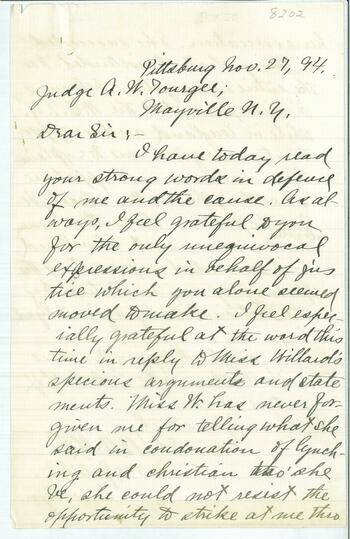 8202
Pittsburg Nov. 27, 94.
Judge A. W. Tourgee;
Mayville N. Y.
Dear Sir;-
I have today read
your strong words in defence
of me and the cause. As al
ways, I feel grateful to you
for the only unequivocal
expressions in behalf of jus
tice which you alone seemed
moved to make. I feel espec-
ially grateful at the word this
time in reply to Miss Willard's
specious arguments and state
ments. Miss W. has never for-
given me for telling what she
said in condonation of lynch-
ing and christian tho' she
be, she could not resist the
opportunity to strike at me thro